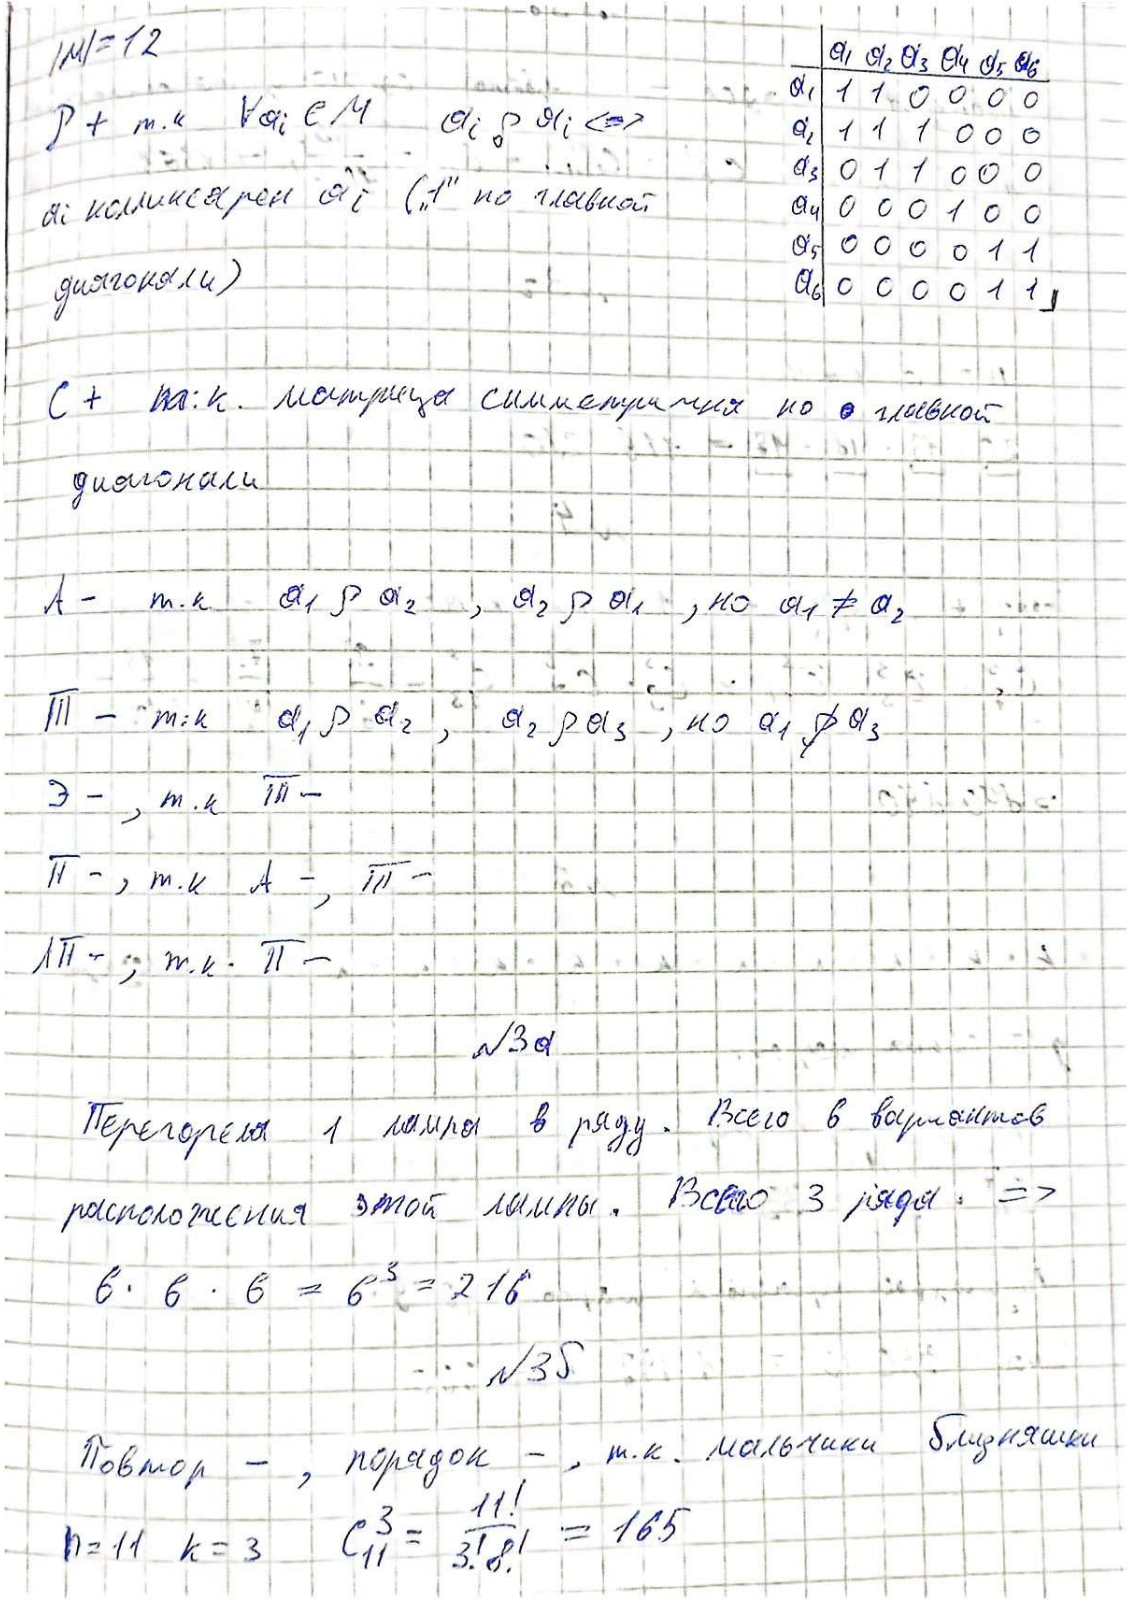 |M|=12
a1 a2 a3 a4 a5 a6
a1 1 1 0 0 0 0
a2 1 1 1 0 0 0
a3 0 1 1 0 0 0
a4 0 0 0 1 0 0
a5 0 0 0 0 1 1
a6 0 0 0 0 1 1
Р + т.к ∀ai ∈ M ai ρ ai <=>
ai коллинеарен ai („1" по главной
диагонали)
С + т.к. матрица симметрична по главной
диагонали
А - т.к a1 ρ a2 , a2 ρ a1 , но a1 ≠ a2
Т - т.к a1 ρ a2 , a2 ρ a3 , но a1 ρ̸ a3
Э - , т.к Т -
П - , т.к А - , Т -
ЛП - , т.к. П -
№3а
Перегорела 1 лампа в ряду. Всего 6 вариантов
расположения этой лампы. Всего 3 ряда. =>
6 · 6 · 6 = 6³ = 216
№3б
Повтор - , порядок - , т.к. мальчики близняшки
n=11 k=3 C₁₁³ = 11!/3!8! = 165